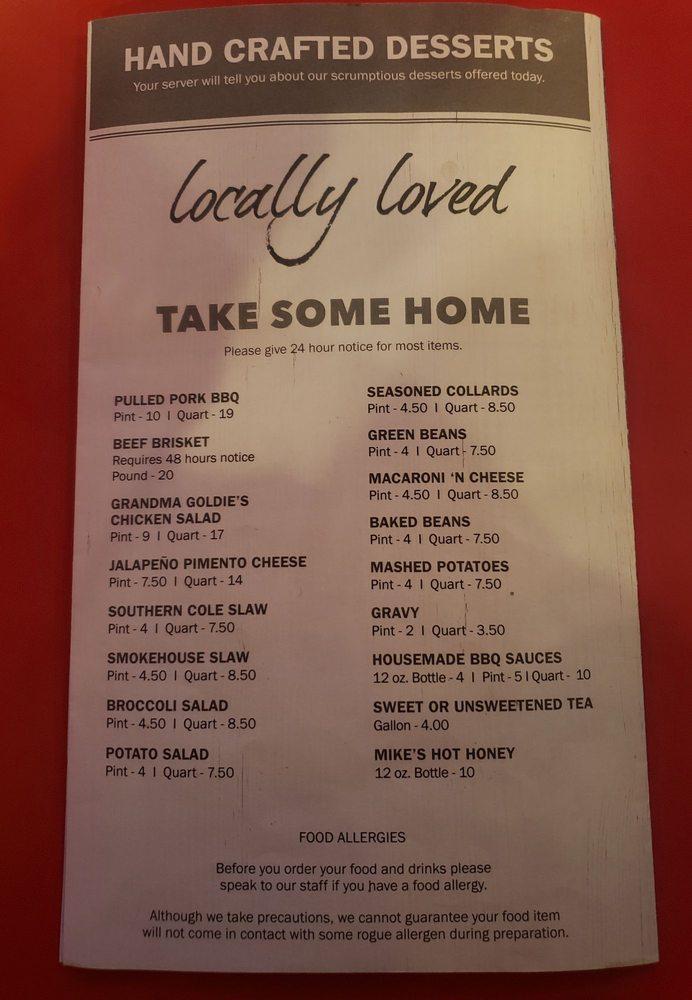 HAND CRAFTED DESSERTS
Your server will tell you about our scrumptious desserts offered today.
locally loved
TAKE SOME HOME
Please give 24 hour notice for most items.
PULLED PORK BBQ
Pint - 10 I Quart - 19
BEEF BRISKET
Requires 48 hours notice
Pound - 20
GRANDMA GOLDIE'S
CHICKEN SALAD
Pint - 9 I Quart - 17
JALAPEÑO PIMENTO CHEESE
Pint - 7.50 I Quart - 14
SOUTHERN COLE SLAW
Pint - 4 I Quart - 7.50
SMOKEHOUSE SLAW
Pint - 4.50 I Quart - 8.50
BROCCOLI SALAD
Pint - 4.50 I Quart - 8.50
POTATO SALAD
Pint - 4 I Quart - 7.50
SEASONED COLLARDS
Pint - 4.50 I Quart - 8.50
GREEN BEANS
Pint - 4 I Quart - 7.50
MACARONI 'N CHEESE
Pint - 4.50 I Quart - 8.50
BAKED BEANS
Pint - 4 I Quart - 7.50
MASHED POTATOES
Pint - 4 I Quart - 7.50
GRAVY
Pint - 2 I Quart - 3.50
HOUSEMADE BBQ SAUCES
12 oz. Bottle - 4 I Pint - 5 I Quart - 10
SWEET OR UNSWEETENED TEA
Gallon - 4.00
MIKE'S HOT HONEY
12 oz. Bottle - 10
FOOD ALLERGIES
Before you order your food and drinks please
speak to our staff if you have a food allergy.
Although we take precautions, we cannot guarantee your food item
will not come in contact with some rogue allergen during preparation.